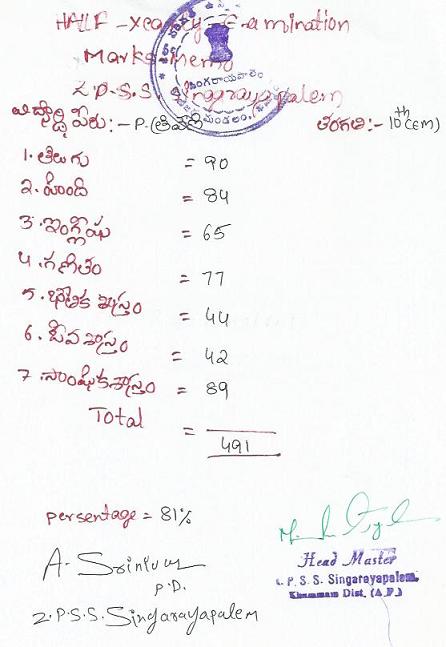 HALF - Yearly - Examination
Marks memo
Z.P.S.S. Singarayapalem
విద్యార్థి పేరు:- P.త్రివేణి తరగతి:- 10th (EM)
1. తెలుగు = 90
2. హింది = 84
3. ఇంగ్లీషు = 65
4. గణితం = 77
5. భౌతిక శాస్త్రం = 44
6. జీవశాస్త్రం = 42
7. సాంఘికశాస్త్రం = 89
Total = 491
persentage = 81%
A. Srinivas
P.D.
Z.P.S.S. Singarayapalem
Head Master
Z. P. S. S. Singarayapalem,
Khammam Dist. (A.P.)